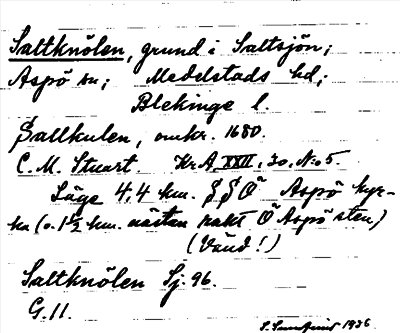 Saltknölen, grund i Saltsjön;
Aspö sn; Medelstads hd;
Blekinge l.
Sallkulen, omkr. 1680.
C. M. Stuart Kr.A. XXII, 30. No 5.
Läge 4,4 km. S S Ö Aspö kyr-
ka (o. 1 1/2 km. nästan rakt Ö Aspö sten.)
(Vänd!)
Saltknölen Sj. 96.
G. 11.
1936